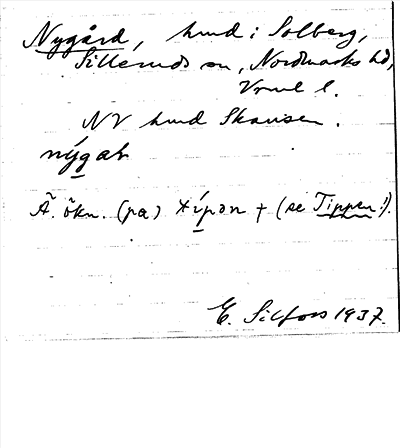 Nygård, hmd i Solberg,
Silleruds sn, Nordmarks hd,
Vrml l.
NV hmd Skansen.
nýgaṯ
Ä. ökn. (pa) típən + (se Tippen!).
E. Silfors 1937.